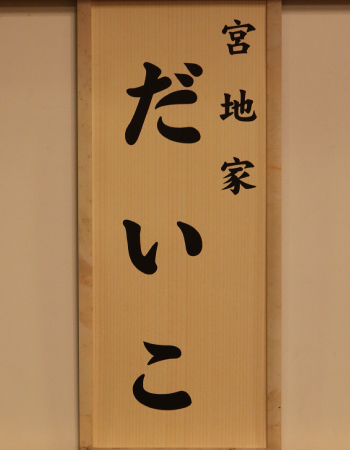 宮地家
だいこ